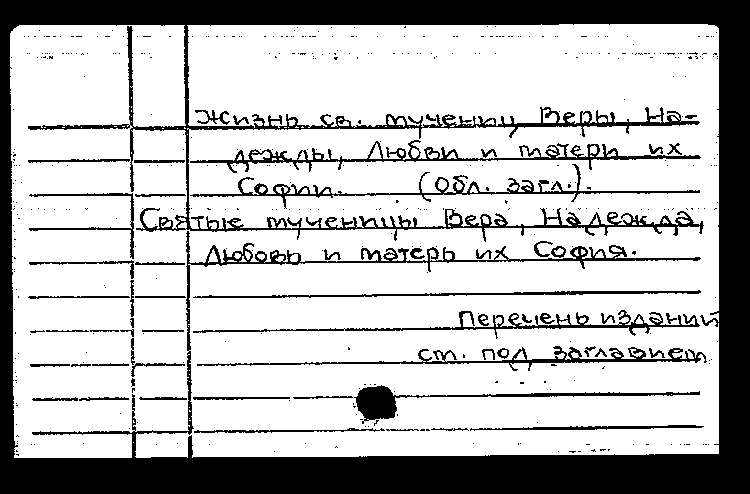 Жизнь св. мучениц Веры, На-
дежды, Любви и матери их
Софии. (Обл. загл.).
Святые мученицы Вера, Надежда,
Любовь и матерь их София.
Перечень изданий
см. под заглавием